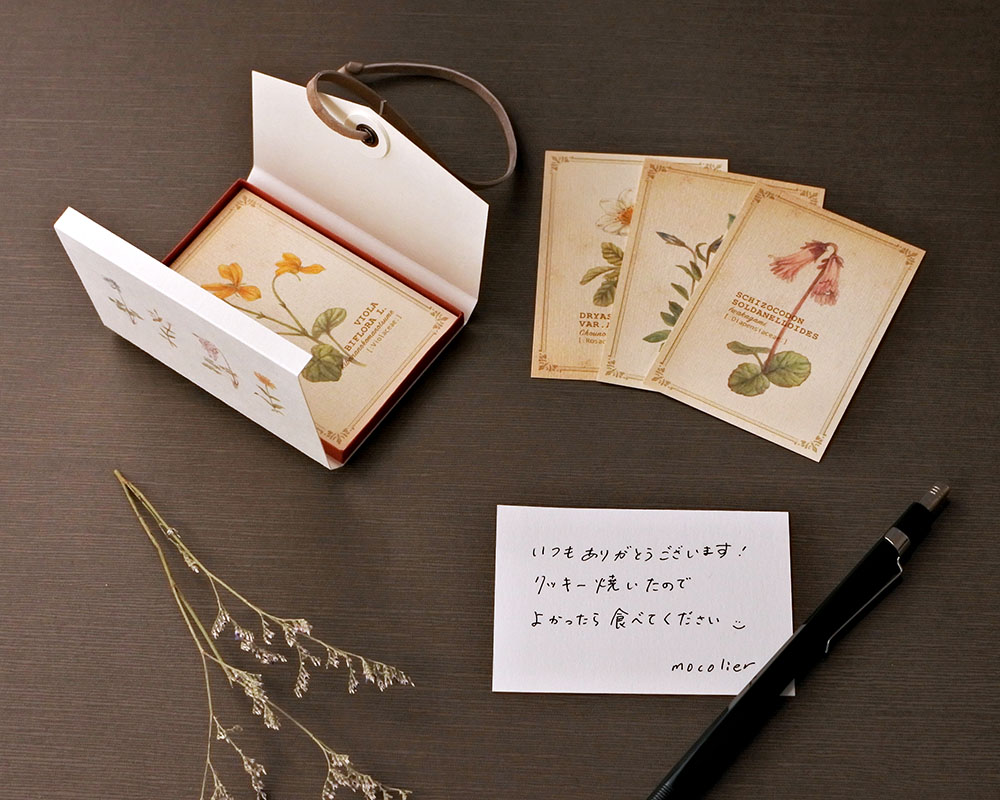 VIOLA
BIFLORA L.
[:Violaceae:]
DRYAS
VAR.
SCHIZOCODON
SOLDANELLOIDES
[:Diapensiaceae:]
いつもありがとうございます！
クッキー焼いたので
よかったら食べてください
mocolier